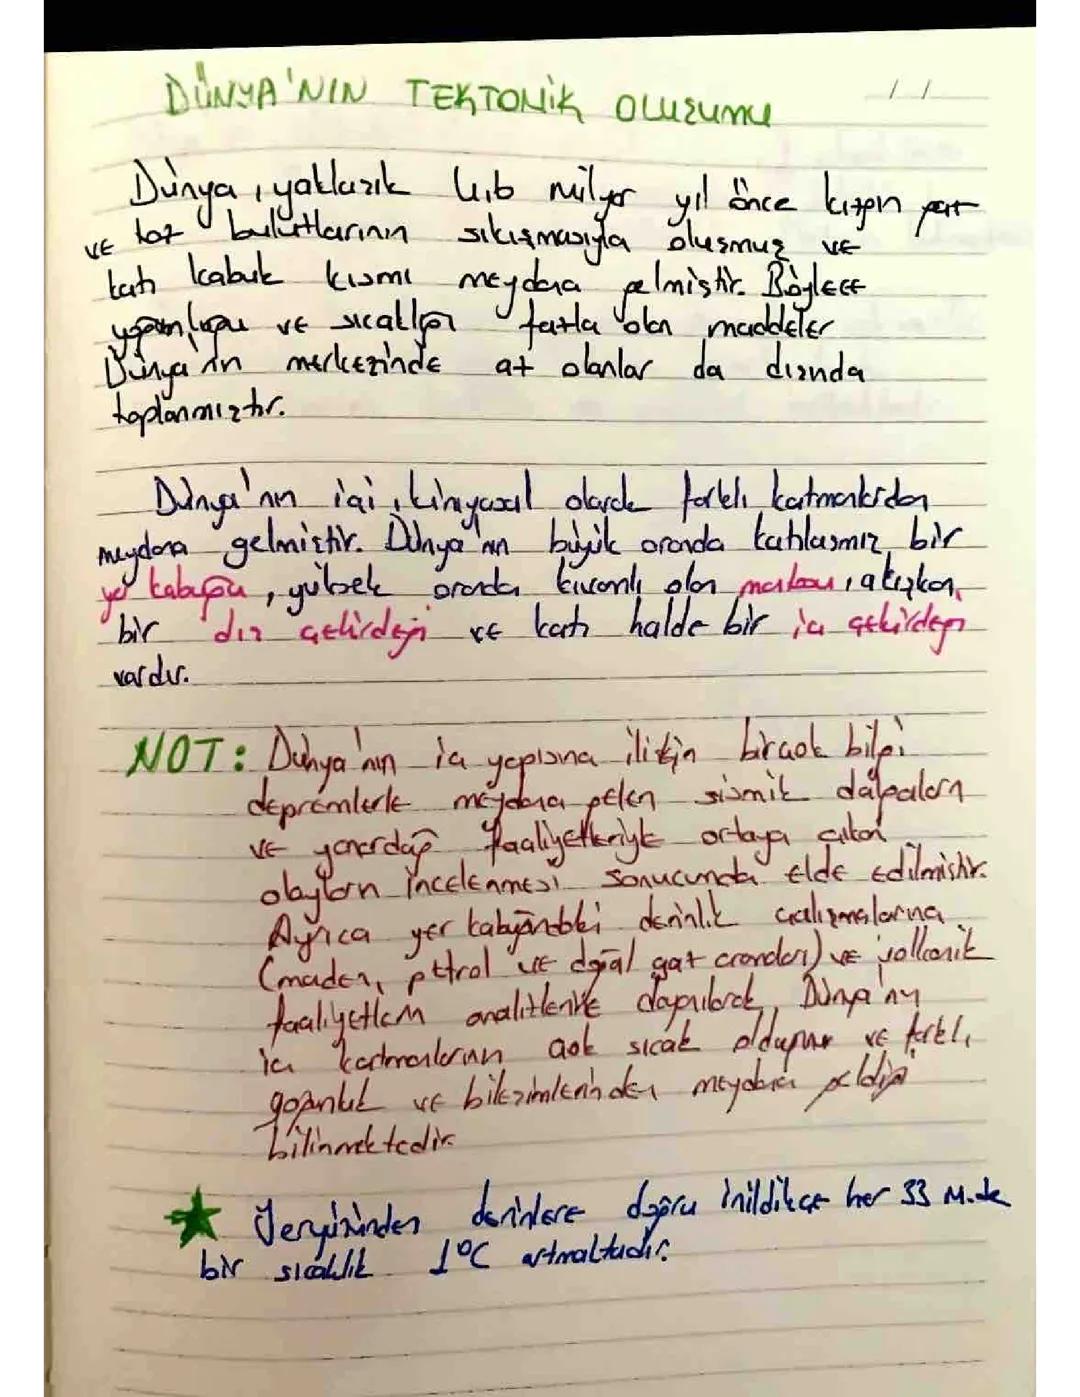 DÜNYA'NIN TEKTONİK OLUŞUMU
/ /
Dünya, yaklaşık 4,6 milyar yıl önce kızgın gaz
ve toz bulutlarının sıkışmasıyla oluşmuş ve
katı kabuk kısmı meydana gelmiştir. Böylece
yoğunluğu ve sıcaklığı fazla olan maddeler
Dünya'nın merkezinde az olanlar da dışında
toplanmıştır.
Dünya'nın içi, kimyasal olarak farklı katmanlardan
meydana gelmiştir. Dünya'nın büyük oranda katılaşmış bir
yer kabuğu, yüksek oranda kıvamlı olan mantosu, akışkan
bir dış çekirdeği ve katı halde bir iç çekirdeği
vardır.
NOT: Dünya'nın iç yapısına ilişkin birçok bilgi
depremlerle meydana gelen sismik dalgaların
ve yanardağ faaliyetleriyle ortaya çıkan
olayların incelenmesi sonucunda elde edilmiştir.
Ayrıca yer kabuğundaki derinlik çalışmalarına
(maden, petrol ve doğal gaz aramaları) ve volkanik
faaliyetlerin analizlerine dayanılarak, Dünya'nın
iç katmanlarının çok sıcak olduğunu ve farklı
yoğunluk ve bileşimlerinden meydana geldiği
bilinmektedir.
★ Yeryüzünden derinlere doğru inildikçe her 33 M.de
bir sıcaklık 1°C artmaktadır.